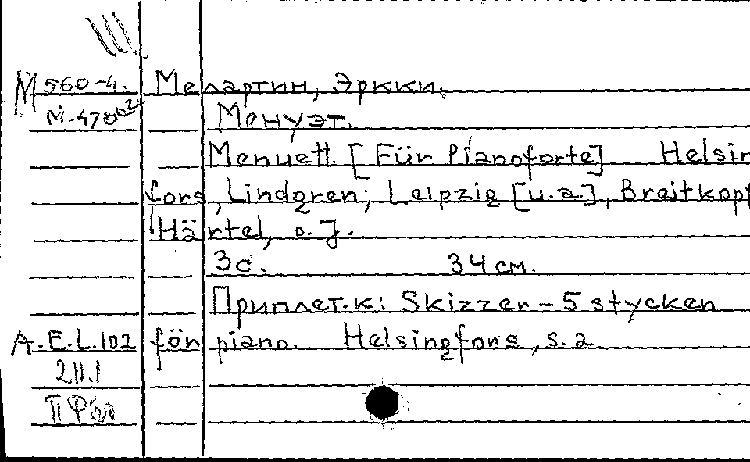 М 560-4. Мелартин, Эркки.
М-478 Менуэт.
Menuett [Für Pianoforte] Helsin
fors, Lindgren; Leipzig [u.a.], Breitkopf
Härtel, o. J.
3 с. 34 см.
Приплет. к: Skizzer - 5 stycken
A.E.L.102 för piano. Helsingfors, s. a.